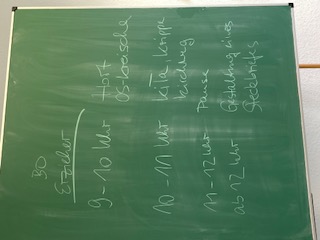 BO
Erzieher
9 - 10 Uhr Hort
Ostereische
10 - 11 Uhr Kita, Krippe
Kleidung
11 - 12 Uhr Pause
ab 12 Uhr Gestaltung eines
Steckbriefes